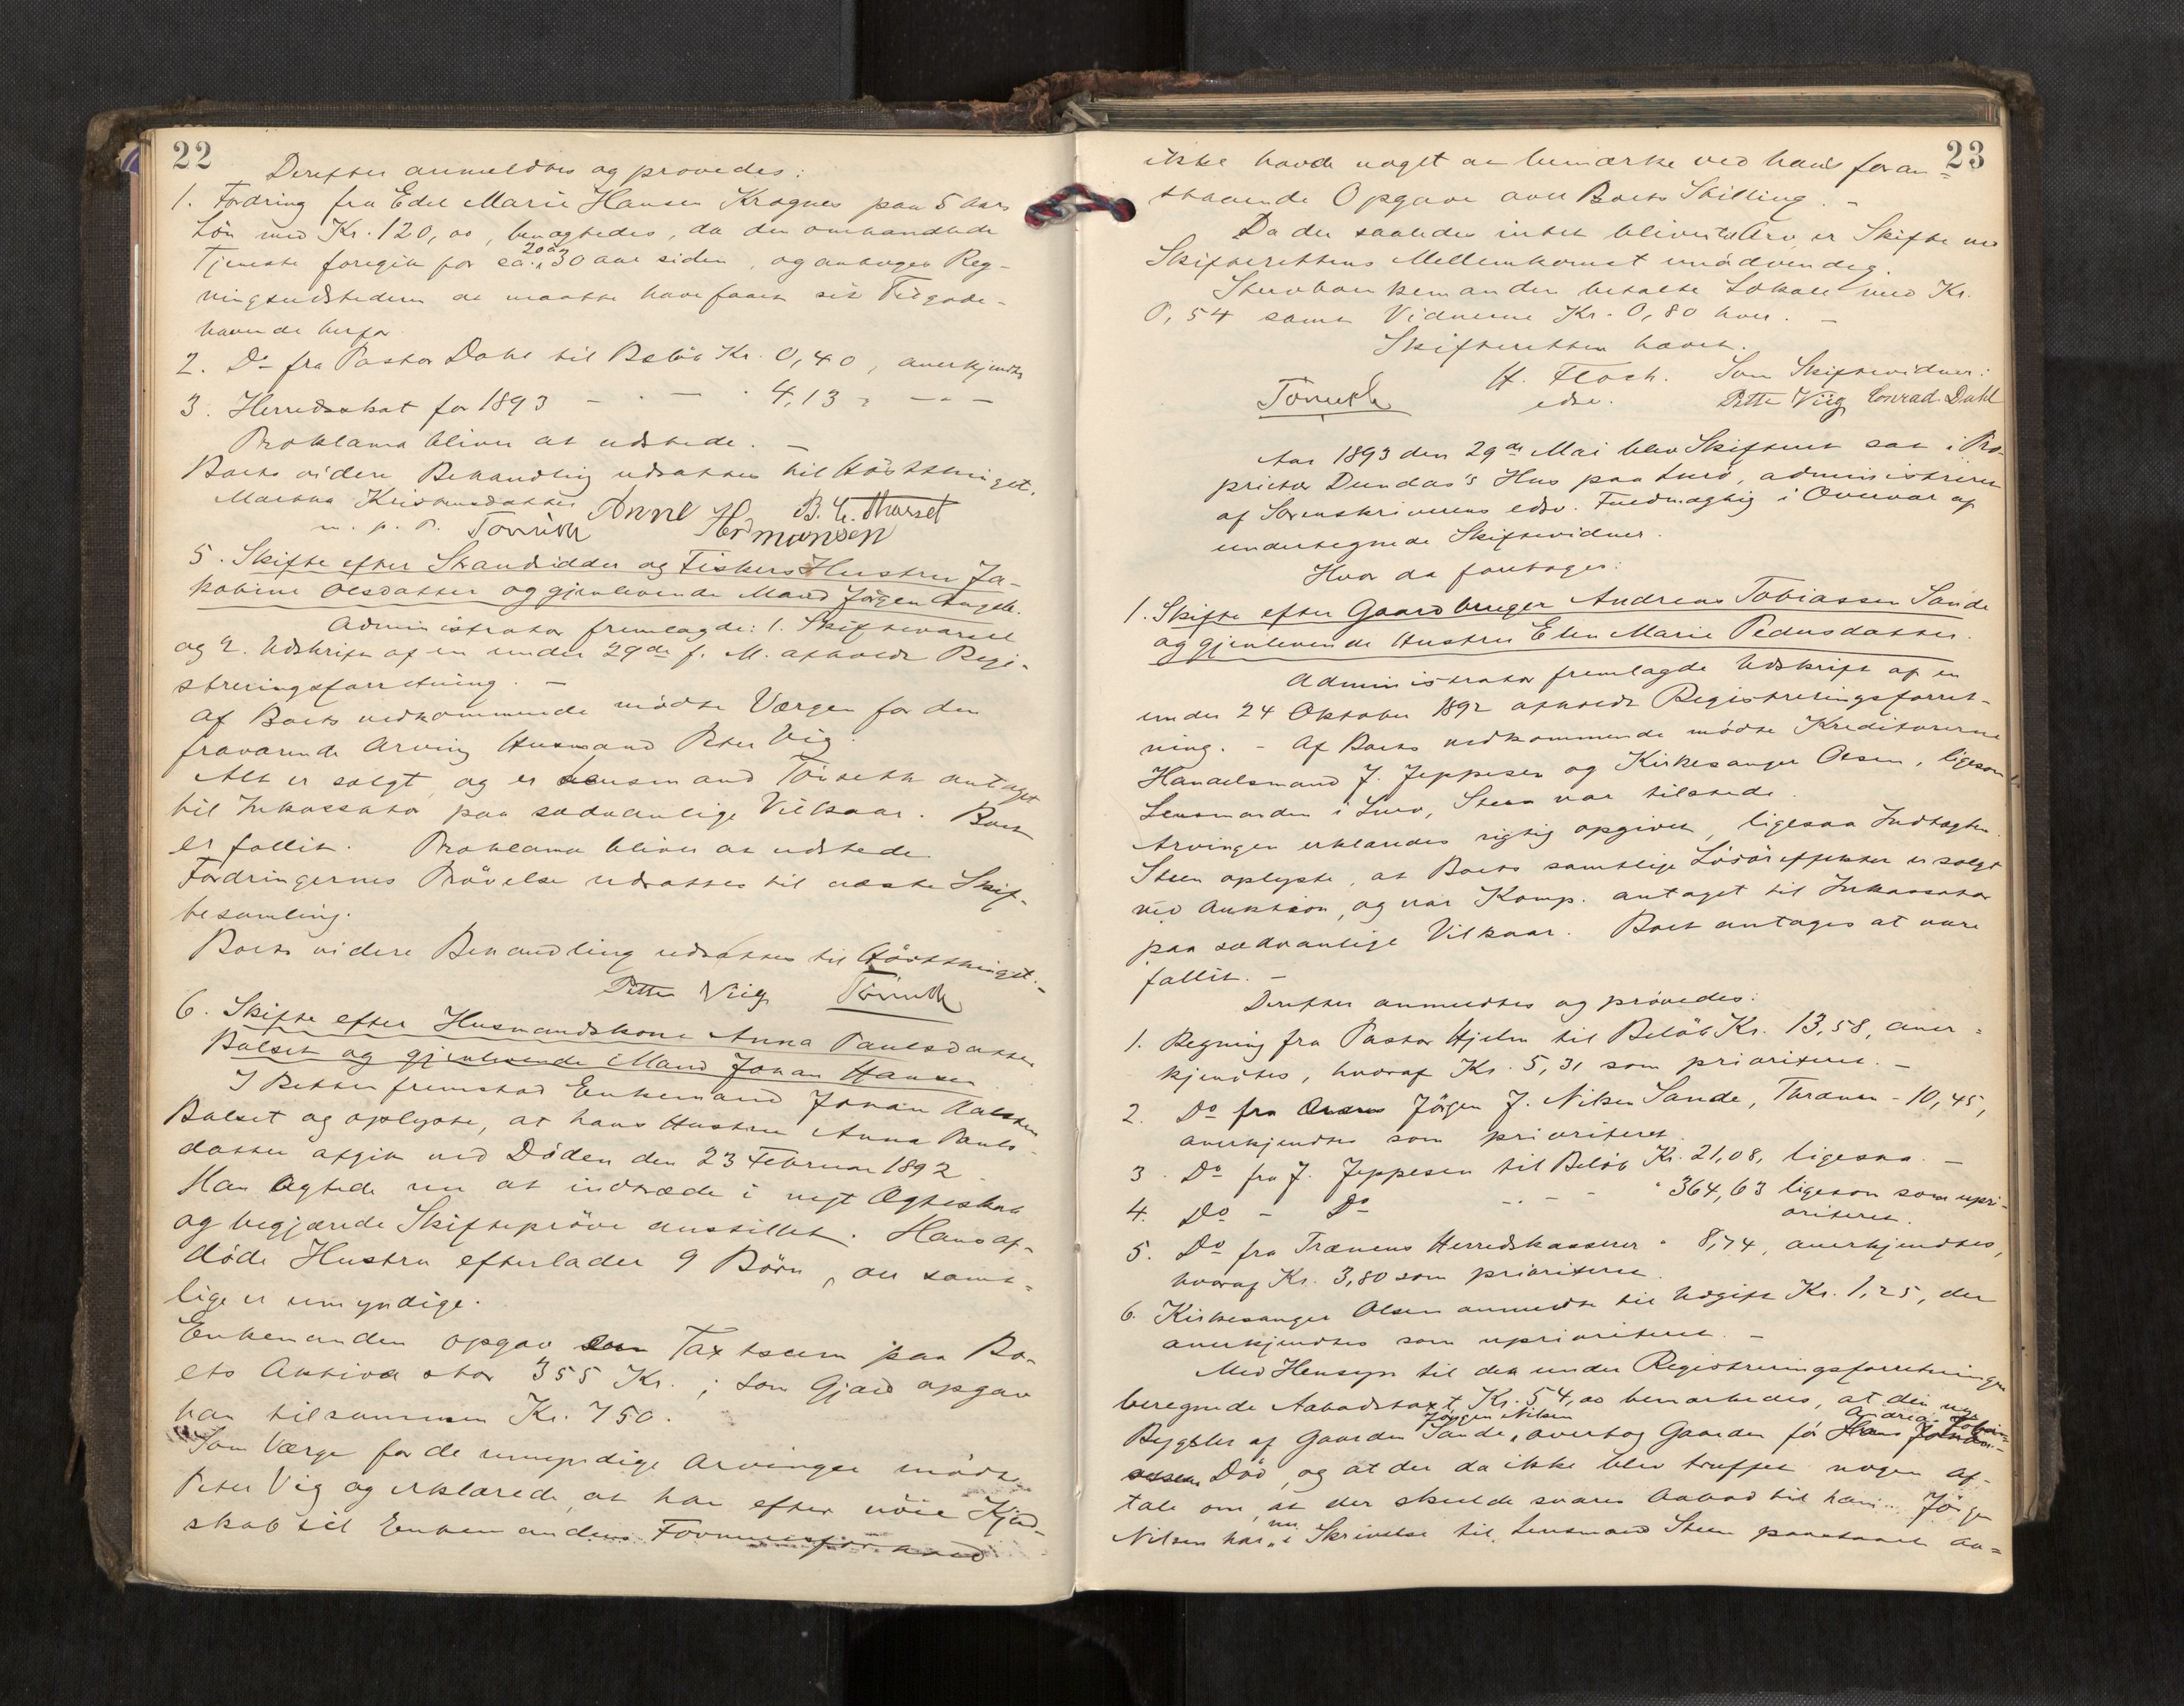 22
Derefter anmeldtes og prøvedes:
1. Fordring fra Edel Marie Hansen Krognes paa 5 Aars
Løn med Kr. 120,00, benægtedes, da den omhandlede
Tjeneste foregik for ca. 20 à 30 aar siden, og antages Reg-
ningsudstederen at maatte have faaet sit Tilgode-
havende herfor
2. Do fra Pastor Dahl til Beløb Kr. 0,40, anerkjendtes
3. Herredsskat for 1893 - - - 4,13, - - -
Proklama bliver at udstede. -
Boets videre Behandling udsattes til Høstthinget.
Martha Kristensdatter Anne Hermansen B. C. Tharset
m. p. P. Tönseth
5. Skifte efter Strandsidder og Fiskers Hustru Ja-
kobine Olsdatter og gjenlevende Mand Jørgen Angell.
Administrator fremlagde: 1. Skiftevarsel
og 2. Udskrift af en under 29de f. M. afholdt Regi-
streringsforretning. -
Af Boets vedkommende mødte Værgen for den
fraværende Arving Husmand Peter Vig.
Alt er solgt, og er Lensmand Tönseth antaget
til Inkassator paa sædvanlige Vilkaar. Boet
er fallit. Proklama bliver at udstede.
Fordringernes Prøvelse udsattes til næste Skif-
tesamling.
Boets videre Behandling udsattes til Høstthinget. -
Petter Viig Tönseth
6. Skifte efter Husmandskone Anna Paulsdatter
Balset og gjenlevende Mand Johan Hansen
I Retten fremstod Enkemand Johan Hansen
Balset og oplyste, at hans Hustru Anna Pauls-
datter afgik ved Døden den 23 Februar 1892
Han agtede nu at indtræde i nyt Ægteskab
og begjærede Skifteprøve anstillet. Hans af-
døde Hustru efterlader 9 Børn, der samt-
lige er umyndige.
Enkemanden opgav den Taxtsum paa Bo-
ets Aktiva stor 355 Kr.; som Gjæld opgav
han tilsammen Kr. 750.
Som Værge for de umyndige Arvinger mødte
Peter Vig og erklærede, at han efter nøie Kjend-
skab til Enkemandens Formuesforhold
23
ikke havde noget at bemærke ved hans foran-
staaende Opgave over Boets Stilling. -
Da der saaledes intet bliver til Arv, er Skifte ved
Skifterettens Mellemkomst unødvendig.
Stervboenkemanden betalte Lokale med Kr.
0,54 samt Vidnerne Kr. 0,80 hver. -
Skifteretten hævet.
Tönseth H. Floch. Som Skiftevidner:
edsv. Petter Viig Conrad Dahl
Aar 1893 den 29de Mai blev Skifteret sat i Pro-
prietær Dundas's Hus paa Lurø, administreret
af Sorenskriverens edsv. Fuldmægtig i Overvær af
undertegnede Skiftevidner.
Hvor da foretoges:
1. Skifte efter Gaardbruger Andreas Tobiassen Sande
og gjenlevende Hustru Elen Marie Pedersdatter.
Administrator fremlagde Udskrift af en
under 24 Oktober 1892 afholdt Registreringsforret-
ning. - Af Boets vedkommende mødte Kreditorerne
Handelsmand J. Jeppesen og Kirkesanger Olsen, ligesom
Lensmanden i Lurø, Steen var tilstede.
Arvingen erklæredes rigtig opgivet, ligesaa Indtægten.
Steen oplyste, at Boets samtlige Løsøreffekter er solgt
ved Auktion, og var Komp. antaget til Inkassator
paa sædvanlige Vilkaar. Boet antages at være
fallit. -
Derefter anmeldtes og prøvedes:
1. Regning fra Pastor Hjelm til Beløb Kr. 13,58, aner-
kjendtes, hvoraf Kr. 5,31 som prioriteret -
2. Do fra Jørgen J. Nilsen Sande, Thrænen - 10,45,
anerkjendtes som prioriteret.
3. Do fra J. Jeppesen til Beløb Kr. 21,08, ligesaa. -
4. Do - Do - - - " 364,63 ligesom som upri-
oriteret.
5. Do fra Trænens Herredskasserer " 8,74, anerkjendtes,
hvoraf Kr. 3,80 som prioriteret.
6. Kirkesanger Olsen anmeldte til Udgift Kr. 1,25, der
anerkjendtes som uprioriteret. -
Med Hensyn til den under Registreringsforretningen
beregnede Aabodstaxt Kr. 54,00 bemærkedes, at den nye
Bygsler af Gaarden Sande, Jørgen Nilsen overtog Gaarden før Hans Andreas Tobias-
sens Død, og at der da ikke blev truffet nogen Af-
tale om, at der skulde svares Aabod til ham. Jørgen
Nilsen har nu i Skrivelse til Lensmand Steen paastaaet An-